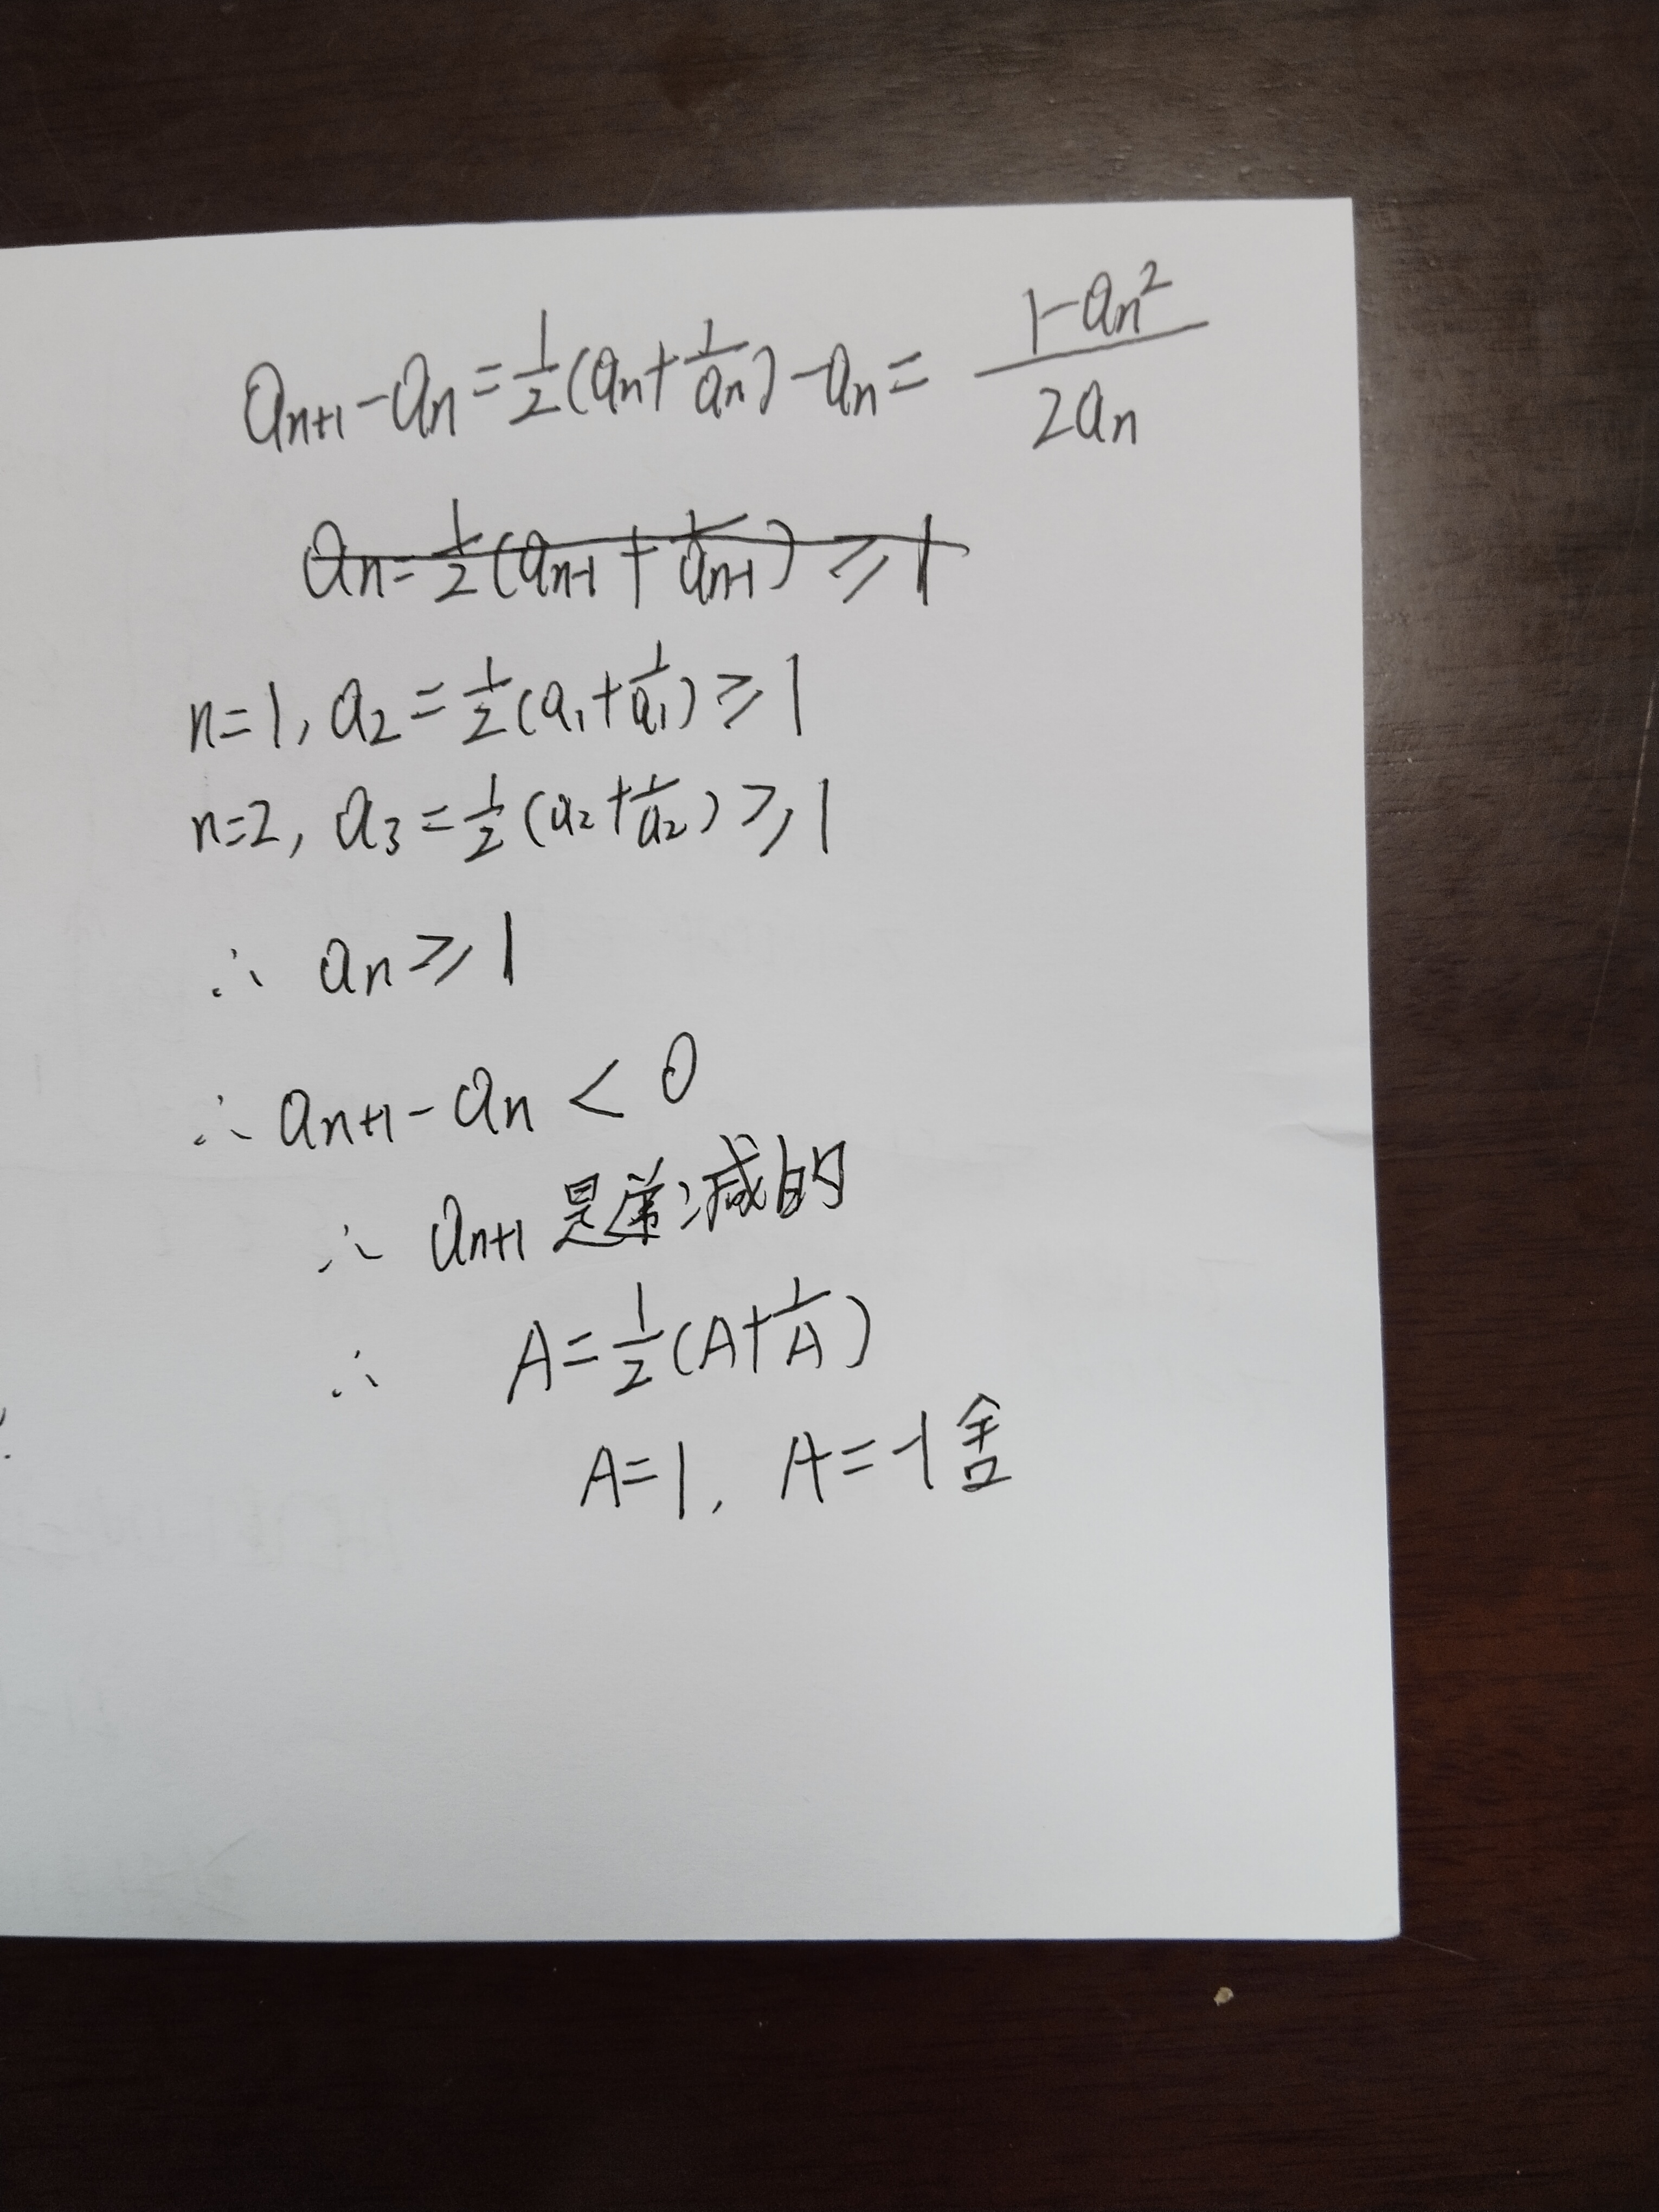 aₙ₊₁-aₙ=½(aₙ+1/aₙ)-aₙ=(1-aₙ²)/(2aₙ)
aₙ=½(aₙ₋₁+1/aₙ₋₁)≥1
n=1, a₂=½(a₁+1/a₁)≥1
n=2, a₃=½(a₂+1/a₂)≥1
∴ aₙ≥1
∴ aₙ₊₁-aₙ<0
∴ aₙ₊₁是递减的
∴ A=½(A+1/A)
A=1, A=-1舍